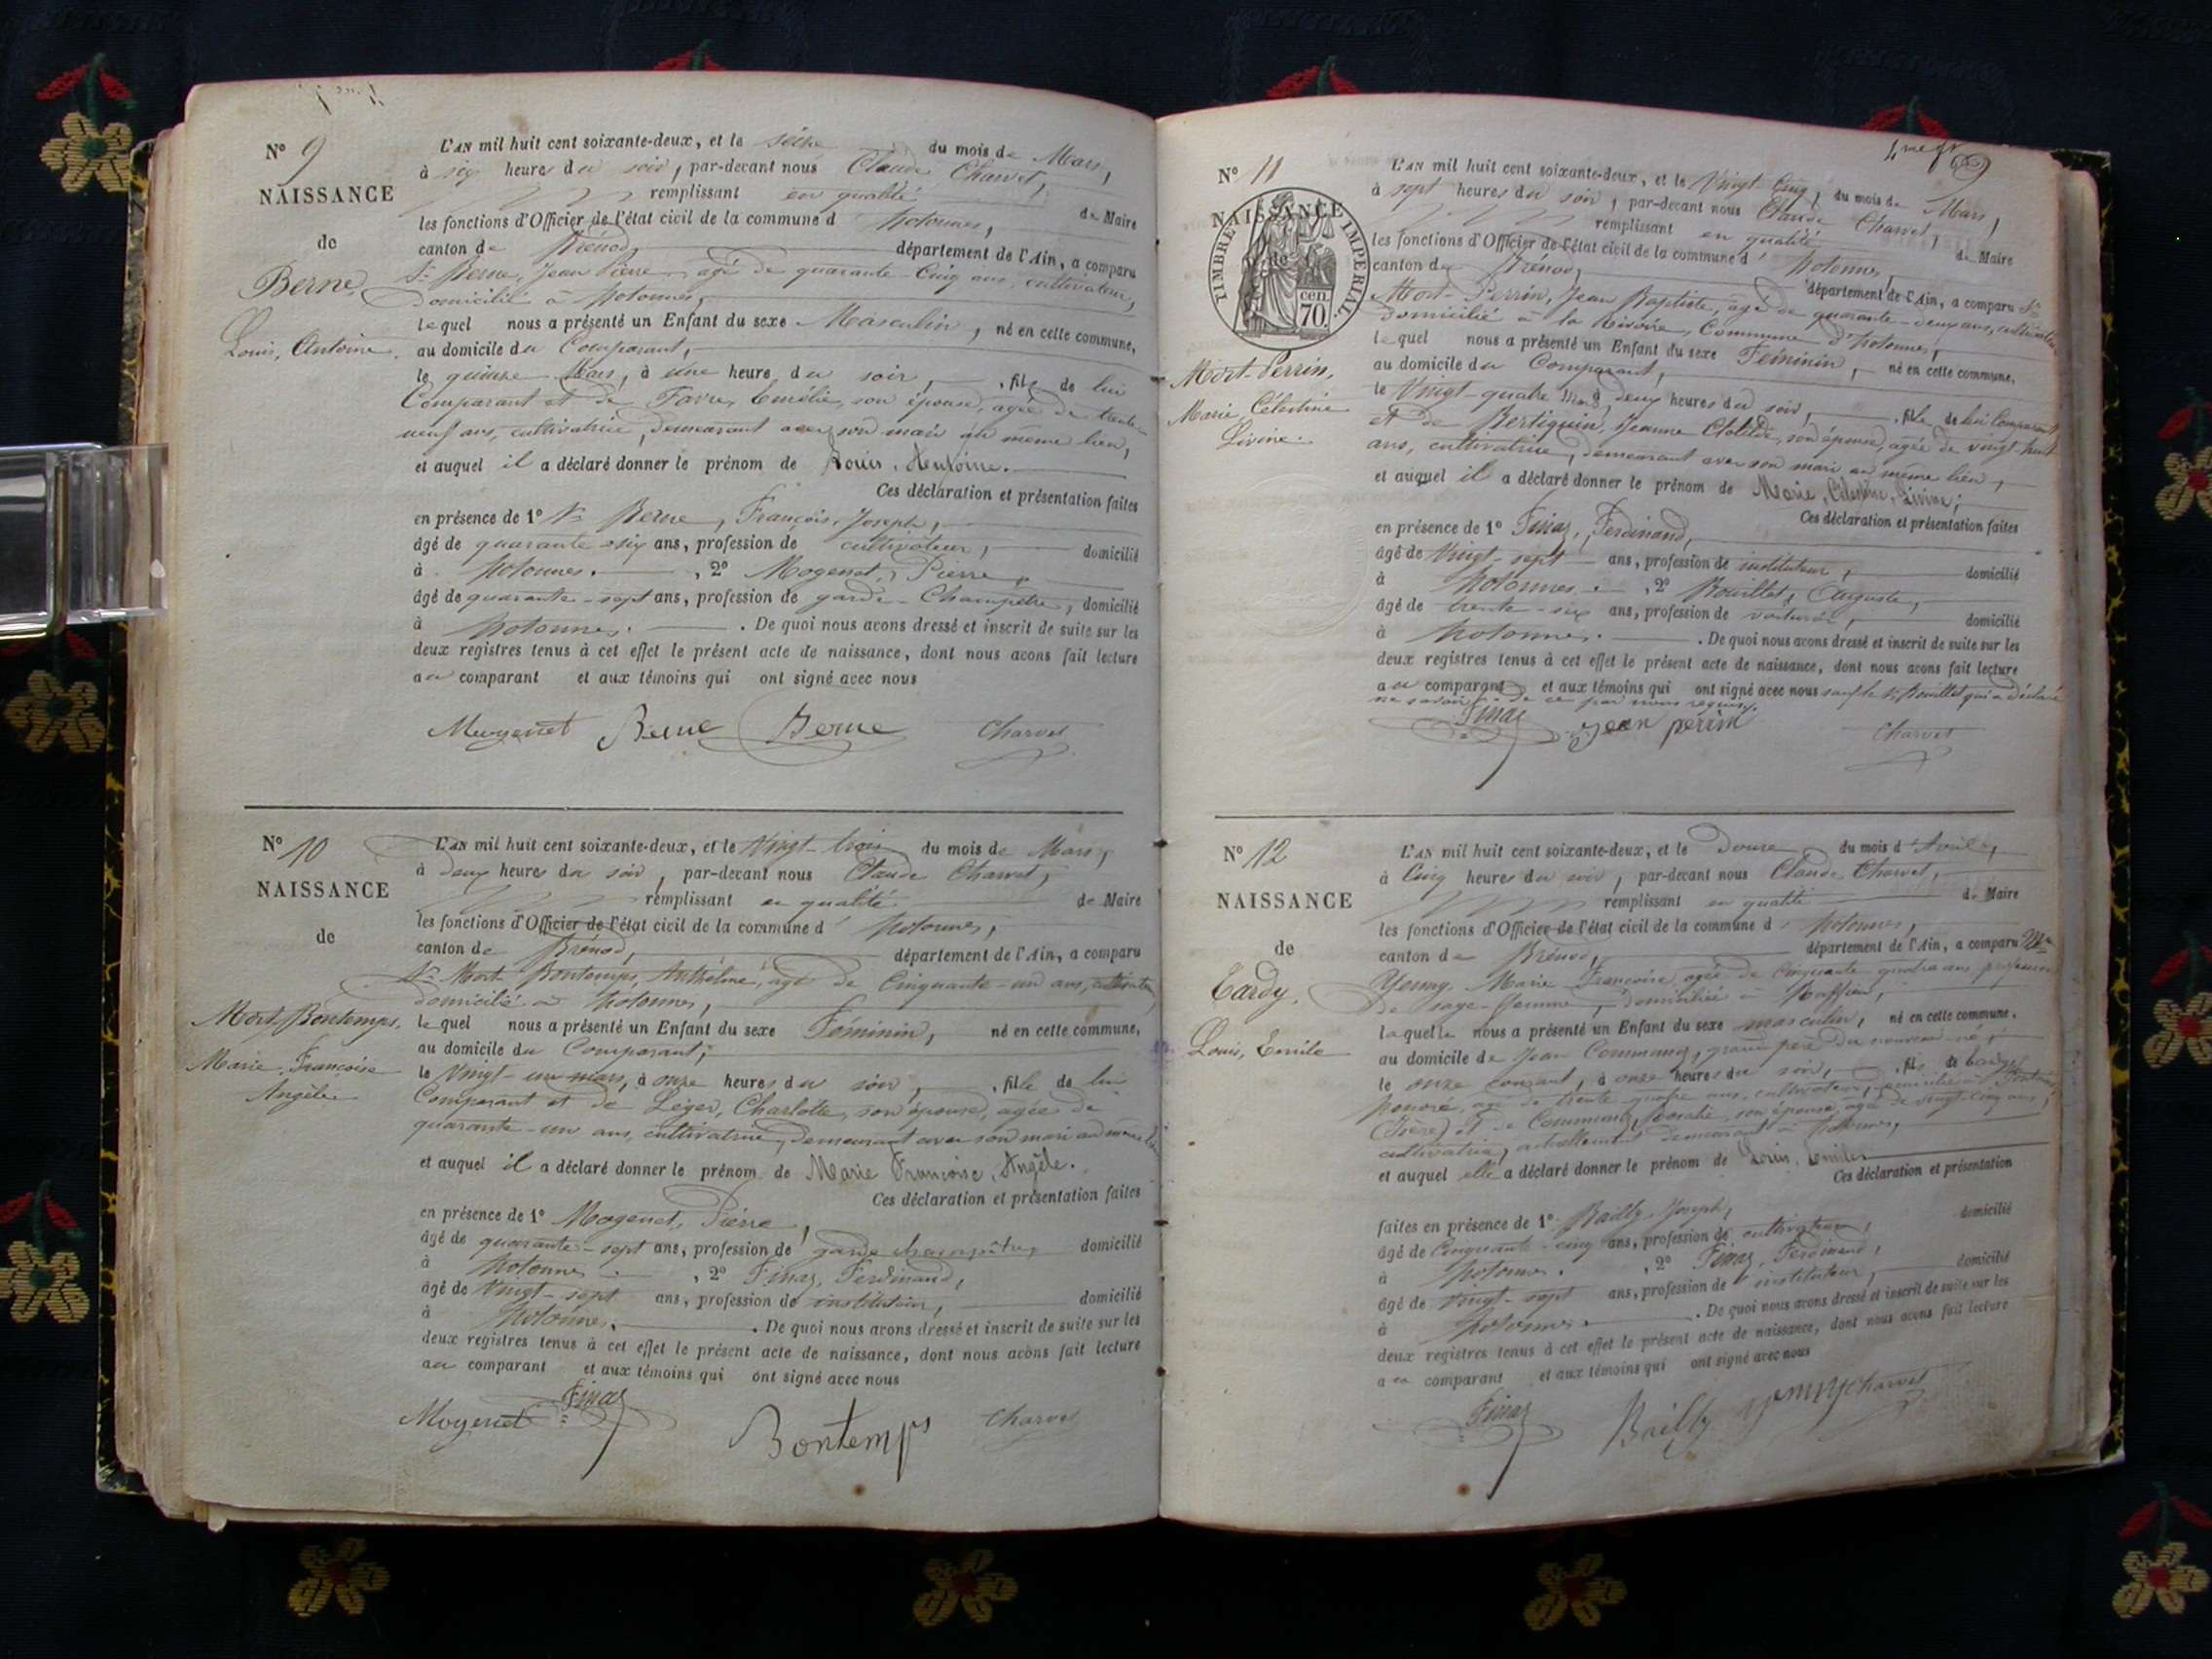 N° 9
NAISSANCE
de
Berne
Louis, Antoine.
L'AN mil huit cent soixante-deux, et le seize du mois de Mars,
à six heures du soir, par-devant nous Claude Charvet,
remplissant en qualité de Maire
les fonctions d'Officier de l'état civil de la commune d'hotonnes,
canton de Brénod, département de l'Ain, a comparu
Sr Berne, Jean Pierre, agé de quarante-cinq ans, cultivateur,
domicilié à hotonnes,
lequel nous a présenté un Enfant du sexe Masculin, né en cette commune,
au domicile du Comparant,
le quinze Mars, à une heure du soir, fils de lui
Comparant et de Favre, Emélie, son épouse, agée de trente-
neuf ans, cultivatrice, demeurant avec son mari au même lieu,
et auquel il a déclaré donner le prénom de Louis, Antoine.
Ces déclaration et présentation faites
en présence de 1° Sr Berne, François, Joseph,
âgé de quarante-six ans, profession de cultivateur, domicilié
à hotonnes. , 2° Mogenet, Pierre,
âgé de quarante-sept ans, profession de garde-Champêtre, domicilié
à hotonnes. . De quoi nous avons dressé et inscrit de suite sur les
deux registres tenus à cet effet le présent acte de naissance, dont nous avons fait lecture
au comparant et aux témoins qui ont signé avec nous
Mogenet Berne Berne Charvet
N° 10
NAISSANCE
de
Mort-Bontemps,
Marie, Françoise
Angèle.
L'AN mil huit cent soixante-deux, et le Vingt-trois du mois de Mars,
à deux heures du soir, par-devant nous Claude Charvet,
remplissant en qualité de Maire
les fonctions d'Officier de l'état civil de la commune d'hotonnes,
canton de Brénod, département de l'Ain, a comparu
Sr Mort-Bontemps, Anthelme, agé de Cinquante-un ans, cultivateur,
domicilié à hotonnes,
lequel nous a présenté un Enfant du sexe Féminin, né en cette commune,
au domicile du Comparant,
le Vingt-un mars, à onze heures du soir, fille de lui
Comparant et de Léger, Charlotte, son épouse, agée de
quarante-un ans, cultivatrice, demeurant avec son mari au même lieu
et auquel il a déclaré donner le prénom de Marie Françoise, Angèle.
Ces déclaration et présentation faites
en présence de 1° Mogenet, Pierre,
âgé de quarante-sept ans, profession de garde champêtre, domicilié
à hotonnes. , 2° Finaz, Ferdinand,
âgé de Vingt-sept ans, profession de instituteur, domicilié
à hotonnes. . De quoi nous avons dressé et inscrit de suite sur les
deux registres tenus à cet effet le présent acte de naissance, dont nous avons fait lecture
au comparant et aux témoins qui ont signé avec nous
Finaz
Mogenet Bontemps Charvet
N° 11
NAISSANCE
de
TIMBRE IMPERIAL
70 cen.
Mort-Perrin,
Marie, Célestine
Livine.
L'AN mil huit cent soixante-deux, et le Vingt-Cinq, du mois de Mars,
à sept heures du soir, par-devant nous Claude Charvet,
remplissant en qualité de Maire
les fonctions d'Officier de l'état civil de la commune d'hotonnes,
canton de Brénod, département de l'Ain, a comparu Sr
Mort-Perrin, Jean Baptiste, agé de quarante-deux ans, cultivateur
domicilié à la Rivoire, Commune d'hotonnes,
lequel nous a présenté un Enfant du sexe Féminin, né en cette commune,
au domicile du Comparant,
le Vingt-quatre Mars, deux heures du soir, fille de lui Comparant
et de Bertiquin, Jeanne Clotilde, son épouse, agée de vingt-huit
ans, cultivatrice, demeurant avec son mari au même lieu,
et auquel il a déclaré donner le prénom de Marie, Célestine, Livine;
Ces déclaration et présentation faites
en présence de 1° Finaz, Ferdinand,
âgé de Vingt-sept ans, profession de instituteur, domicilié
à hotonnes. , 2° Bouillet, Auguste,
âgé de trente-six ans, profession de voiturier, domicilié
à hotonnes. . De quoi nous avons dressé et inscrit de suite sur les
deux registres tenus à cet effet le présent acte de naissance, dont nous avons fait lecture
au comparant et aux témoins qui ont signé avec nous sauf le Sr Bouillet qui a déclaré
ne savoir de ce par nous requis.
Finaz Jean périn Charvet
N° 12
NAISSANCE
de
Tardy,
Louis, Emile
L'AN mil huit cent soixante-deux, et le Douze du mois d'Avril,
à Cinq heures du soir, par-devant nous Claude Charvet,
remplissant en qualité de Maire
les fonctions d'Officier de l'état civil de la commune d'hotonnes,
canton de Brénod, département de l'Ain, a comparu Me
Yenny, Marie Françoise, agée de Cinquante quatre ans, profession
de sage-femme, domiciliée à Ruffieu,
laquelle nous a présenté un Enfant du sexe masculin, né en cette commune,
au domicile de Jean Communaz, grand père du nouveau-né,
le onze courant, à onze heures du soir, fils de Tardy
honoré, agé de trente quatre ans, cultivateur, domicilié à
(Isère) et de Communaz, Rosalie, son épouse, agée de vingt-cinq ans,
cultivatrice, actuellement demeurant à hotonnes,
et auquel elle a déclaré donner le prénom de Louis, Emile.
Ces déclaration et présentation
faites en présence de 1° Bailly Joseph,
âgé de Cinquante-cinq ans, profession de cultivateur, domicilié
à hotonnes. , 2° Finaz, Ferdinand,
âgé de Vingt-sept ans, profession de instituteur, domicilié
à hotonnes. . De quoi nous avons dressé et inscrit de suite sur les
deux registres tenus à cet effet le présent acte de naissance, dont nous avons fait lecture
a la comparant et aux témoins qui ont signé avec nous
Finaz Bailly yenny Charvet